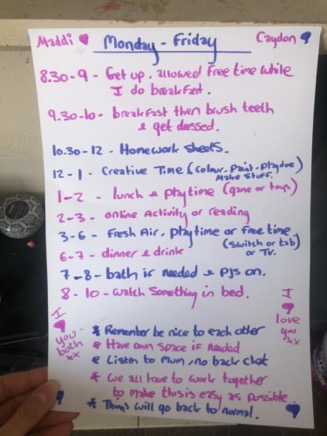 Maddi Monday - Friday Caydon
8.30-9 - Get up, allowed free time while
I do breakfast.
9.30-10 - breakfast then brush teeth
& get dressed.
10.30-12 - Homework sheets.
12-1 - Creative Time (colour, paint, playdoe)
Make stuff.
1-2 - lunch & playtime (game or toys)
2-3 - online Activity or reading
3-6 - Fresh Air, playtime or free time.
(Switch or tab)
or TV.
6-7 - dinner & drink
7-8 - bath if needed & pjs on.
8-10 - watch Something in bed.
I
you
both
xx
I
love
you
xx
* Remember be nice to each other
* Have own space if needed
* Listen to Mum, no back chat
* We all have to work together
to make this is easy as possible.
* Things will go back to normal.